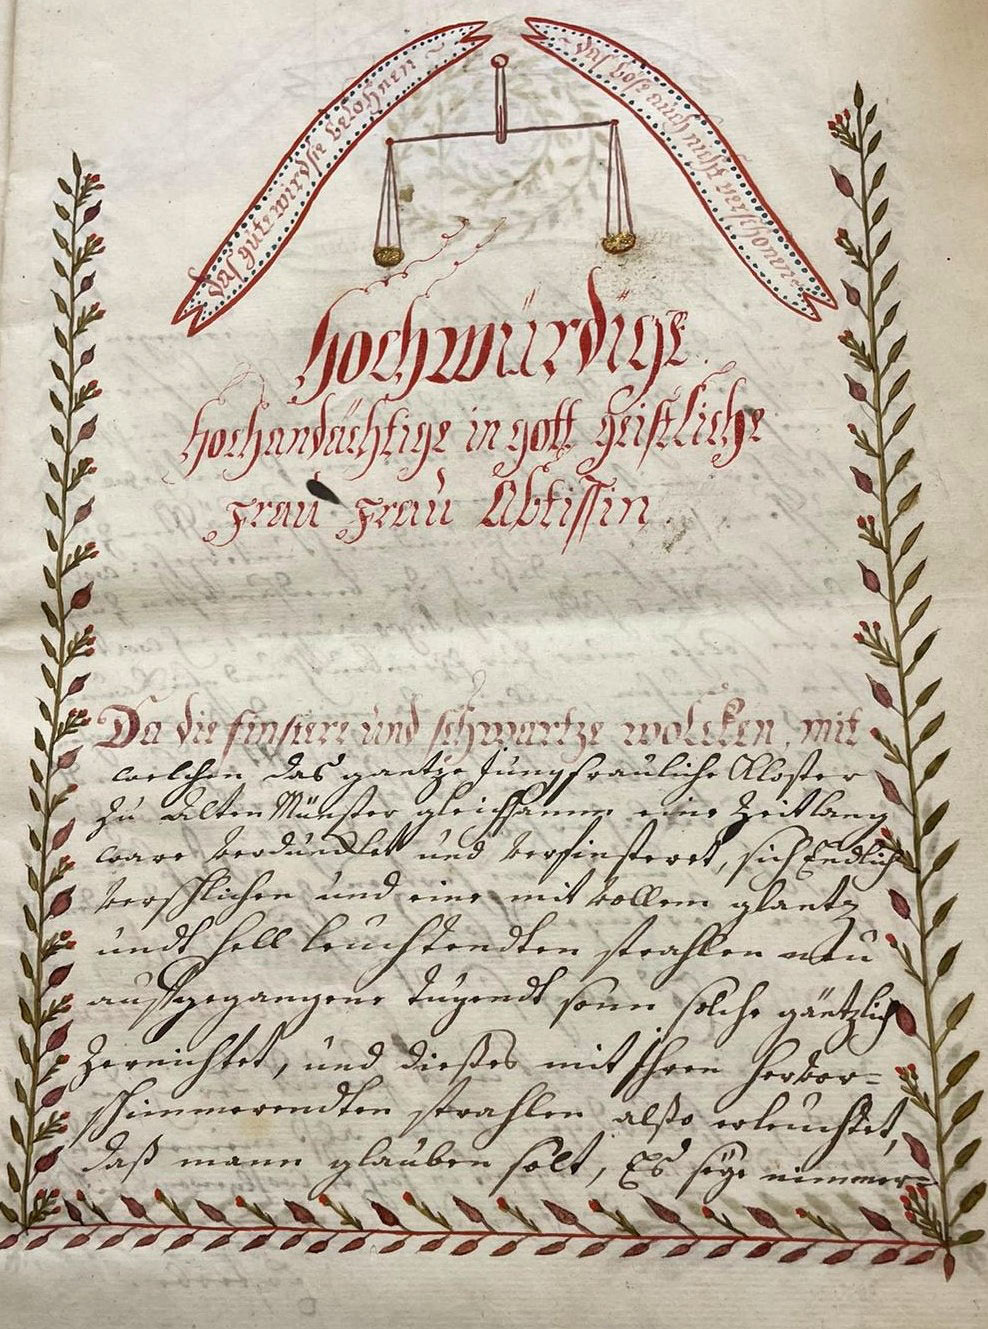 das gúte wird sie belohnen
das böse auch nicht verschonen
Hochwürdige
Hochandächtige in gott geistliche
Frau Frau Abtissin
Da die finstere und schwartze wolcken, mit
welchen das gantze Jungfrauliche Kloster
zu Alten Münster gleichsamm eine Zeitlang
ware verduncklet und verfinsteret, sich Endlich
verschlichen und eine mit vollem glantz
undt hell leuchtendten strahlen neu
aufgegangene tugendt sonn solche gäntzlich
Zernichtet, und dießes mit Ihren hervor=
schimmerendten strahlen alßo erleuchtet,
daß mann glauben solt, Es seye nimmer=